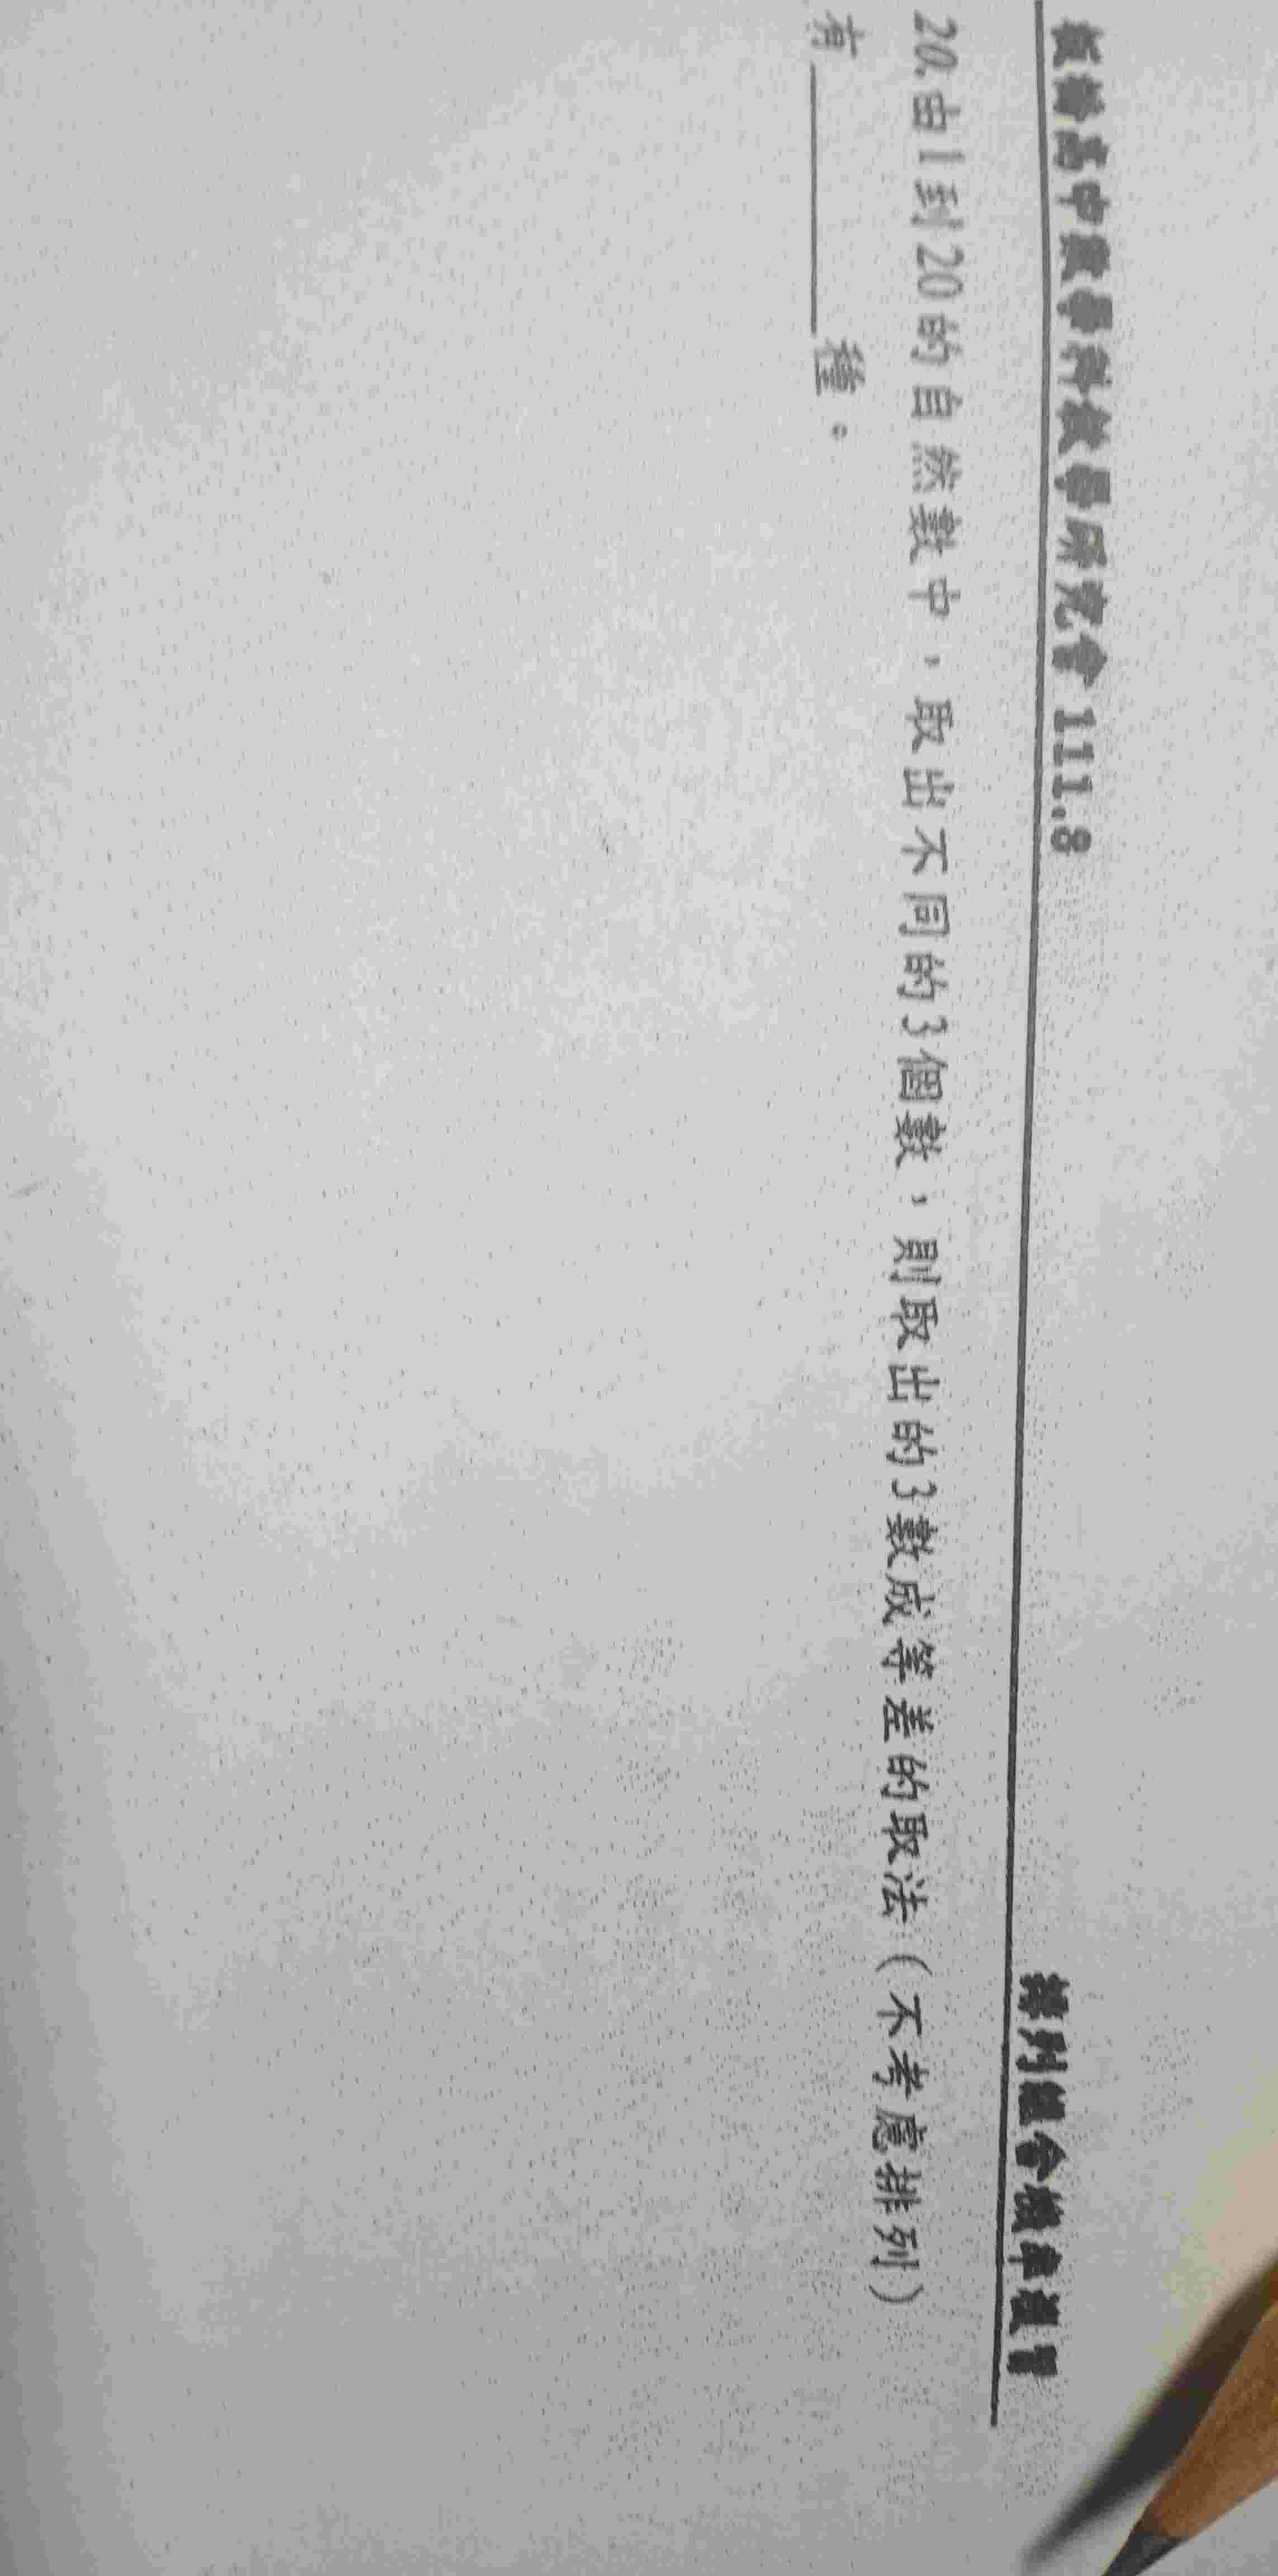 板橋高中數學科教學研究會 111.8 排列組合機率複習
20.由1到20的自然數中，取出不同的3個數，則取出的3數成等差的取法（不考慮排列）
有______種。